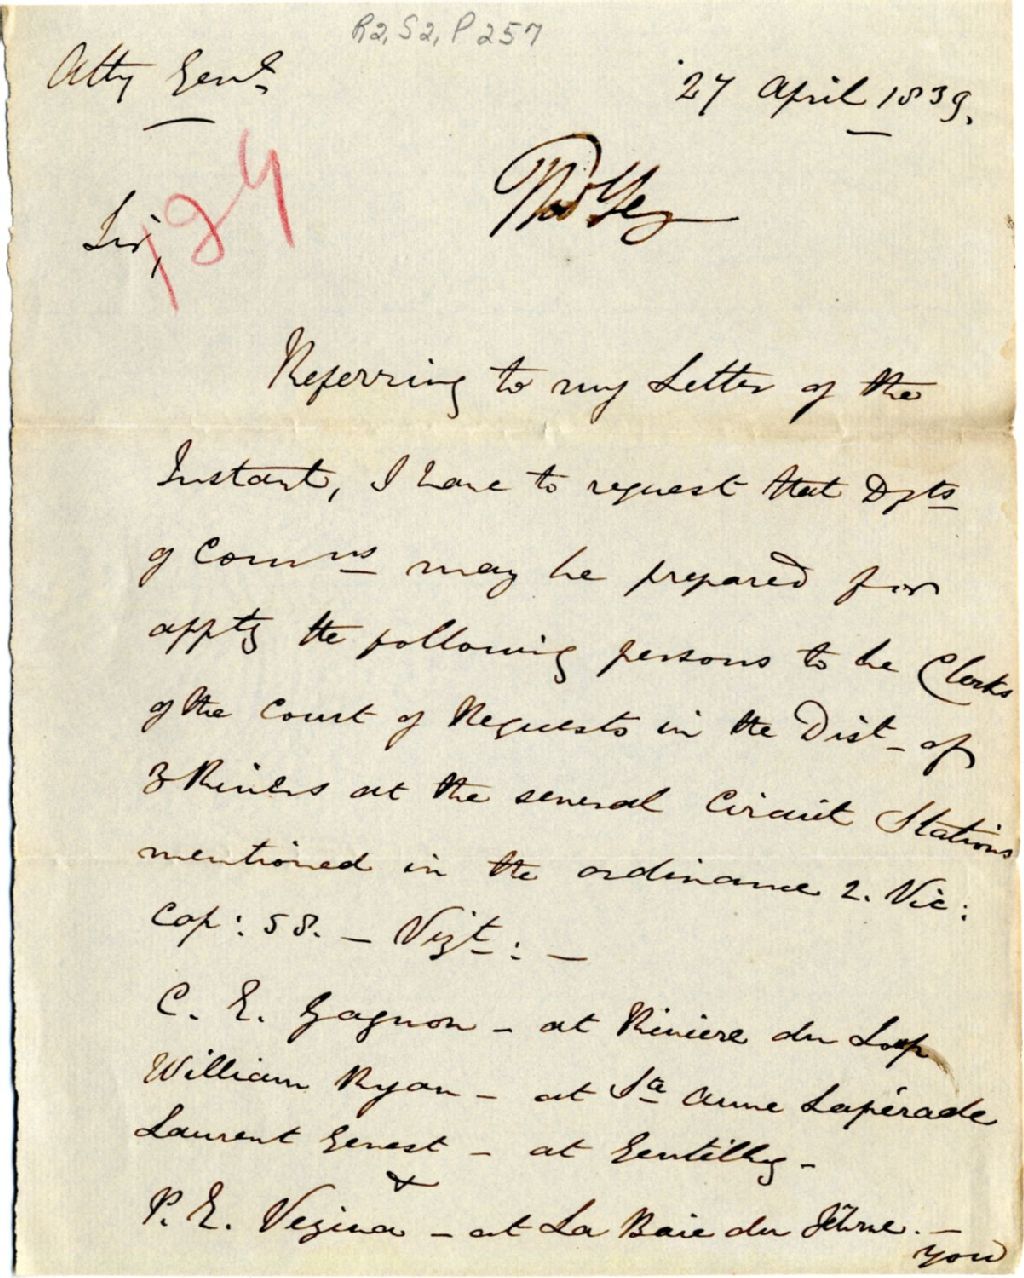 R2, S2, P257
Atty Genl.
27 April 1839.
129
Sir,
Referring to my Letter of the
Instant, I have to request that Dfts
of Comns may be prepared for
apptg the following persons to be Clerks
of the Court of Requests in the Dist. of
3 Rivers at the several Circuit Stations
mentioned in the ordinance 2. Vic:
Cap: 58. – Vizt: –
C. E. Gagnon – at Riviere du Loup
William Ryan – at Ste Anne Lapérade
Laurent Genest – at Gentilly –
&
P. E. Vezina – at La Baie du febvre. –
you